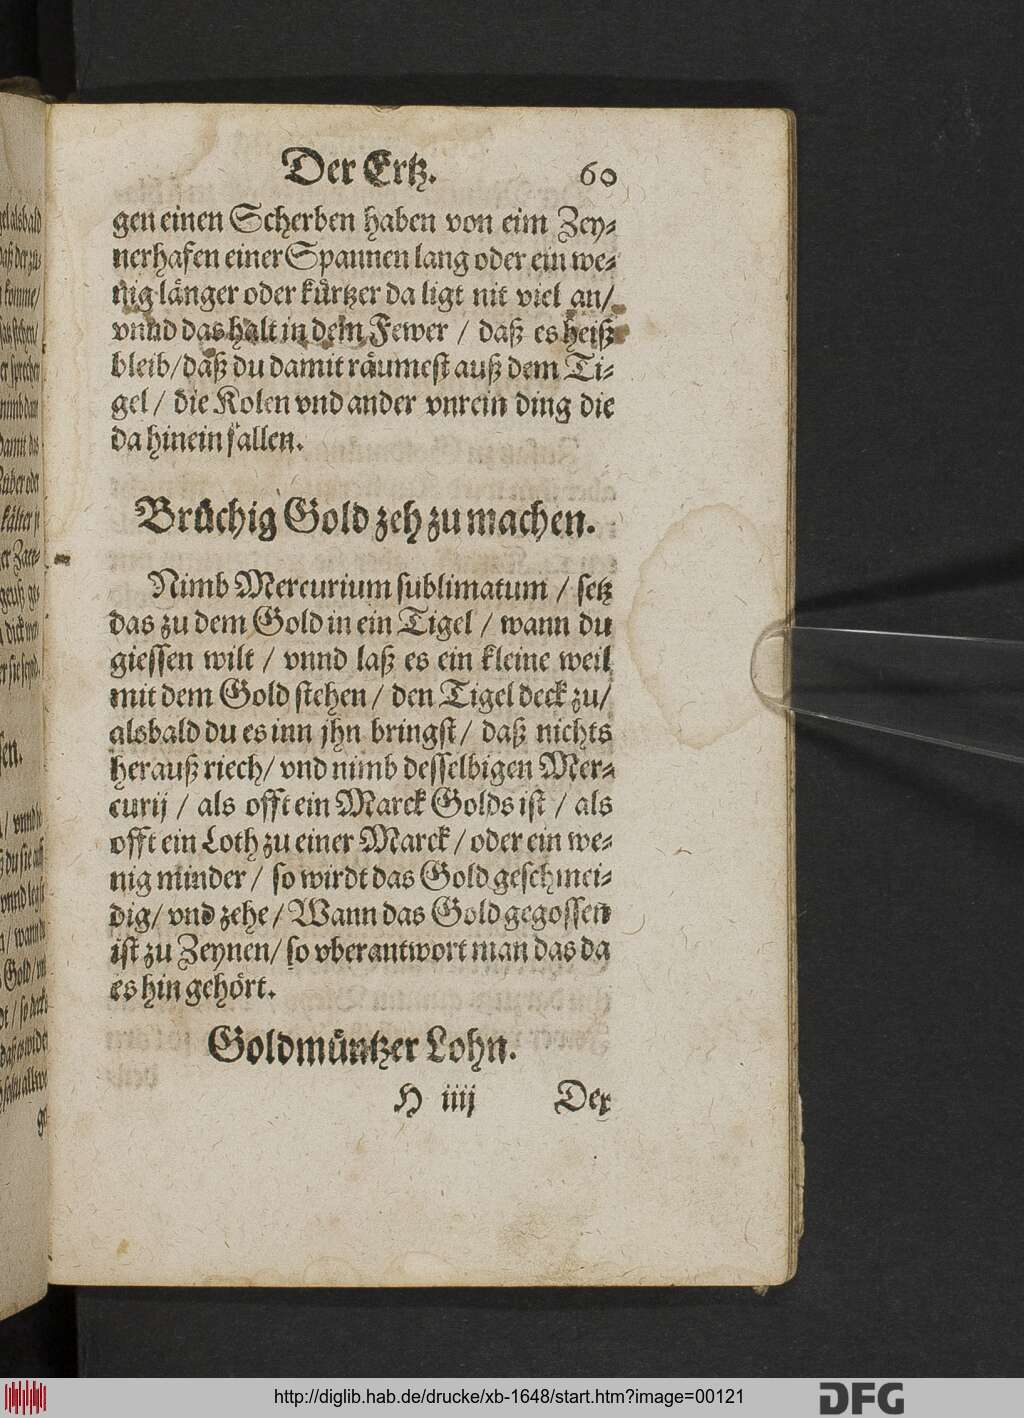 Der Ertz. 60
gen einen Scherben haben von eim Zey-
nerhafen einer Spannen lang oder ein we-
nig länger oder kürtzer da ligt nit viel an/
vnnd das halt in dem Fewer / daß es heiß
bleib/ daß du damit räumest auß dem Ti-
gel / die Kolen vnd ander vnrein ding die
da hinein fallen.
Brüchig Gold zeh zu machen.
Nimb Mercurium sublimatum / setz
das zu dem Gold in ein Tigel / wann du
giessen wilt / vnnd laß es ein kleine weil
mit dem Gold stehen / den Tigel deck zu/
alsbald du es inn jhn bringst / daß nichts
herauß riech/ vnd nimb desselbigen Mer-
curij / als offt ein Marck Golds ist / als
offt ein Loth zu einer Marck / oder ein we-
nig minder / so wirdt das Gold geschmei-
dig/ vnd zehe / Wann das Gold gegossen
ist zu Zeynen/ so vberantwort man das da
es hin gehört.
Goldmüntzer Lohn.
H iiij Der
http://diglib.hab.de/drucke/xb-1648/start.htm?image=00121
DFG